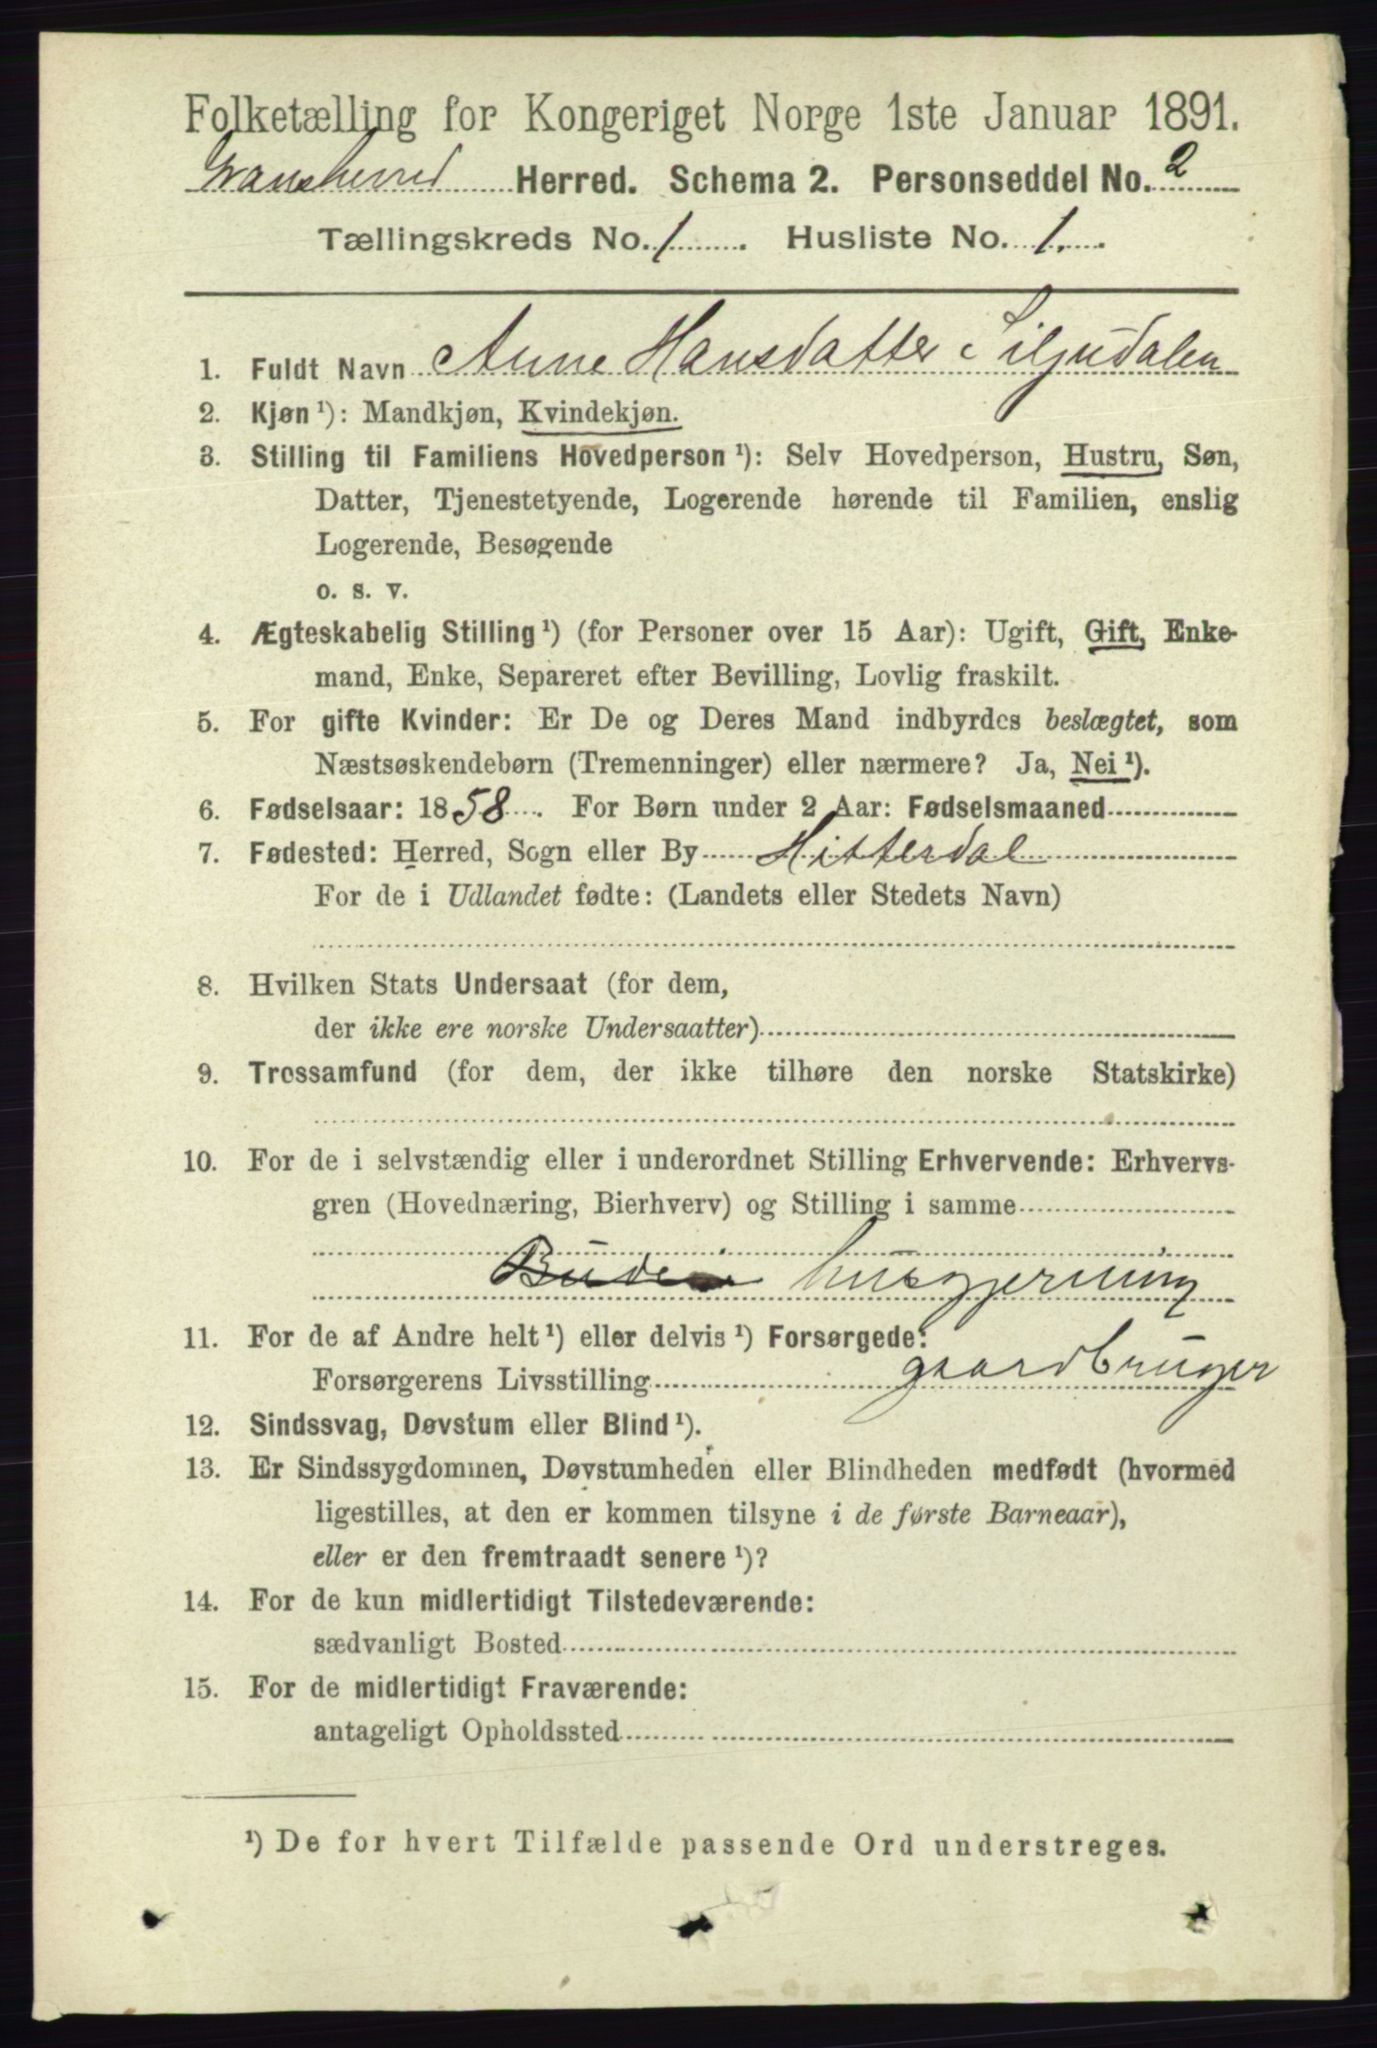 Folketælling for Kongeriget Norge 1ste Januar 1891.
Gransherred Herred. Schema 2. Personseddel No. 2
Tællingskreds No. 1. Husliste No. 1.
1. Fuldt Navn Anne Hansdatter Siljudalen
2. Kjøn ¹): Mandkjøn, Kvindekjøn.
3. Stilling til Familiens Hovedperson ¹): Selv Hovedperson, Hustru, Søn,
Datter, Tjenestetyende, Logerende hørende til Familien, enslig
Logerende, Besøgende
o. s. v.
4. Ægteskabelig Stilling ¹) (for Personer over 15 Aar): Ugift, Gift, Enke-
mand, Enke, Separeret efter Bevilling, Lovlig fraskilt.
5. For gifte Kvinder: Er De og Deres Mand indbyrdes beslægtet, som
Næstsøskendebørn (Tremenninger) eller nærmere? Ja, Nei ¹).
6. Fødselsaar: 1858. For Børn under 2 Aar: Fødselsmaaned
7. Fødested: Herred, Sogn eller By Hitterdal
For de i Udlandet fødte: (Landets eller Stedets Navn)
8. Hvilken Stats Undersaat (for dem,
der ikke ere norske Undersaatter)
9. Trossamfund (for dem, der ikke tilhøre den norske Statskirke)
10. For de i selvstændig eller i underordnet Stilling Erhvervende: Erhvervs-
gren (Hovednæring, Bierhverv) og Stilling i samme
Budeie husgjerning
11. For de af Andre helt ¹) eller delvis ¹) Forsørgede:
Forsørgerens Livsstilling gaardbruger
12. Sindssvag, Døvstum eller Blind ¹).
13. Er Sindssygdommen, Døvstumheden eller Blindheden medfødt (hvormed
ligestilles, at den er kommen tilsyne i de første Barneaar),
eller er den fremtraadt senere ¹)?
14. For de kun midlertidigt Tilstedeværende:
sædvanligt Bosted
15. For de midlertidigt Fraværende:
antageligt Opholdssted
¹) De for hvert Tilfælde passende Ord understreges.